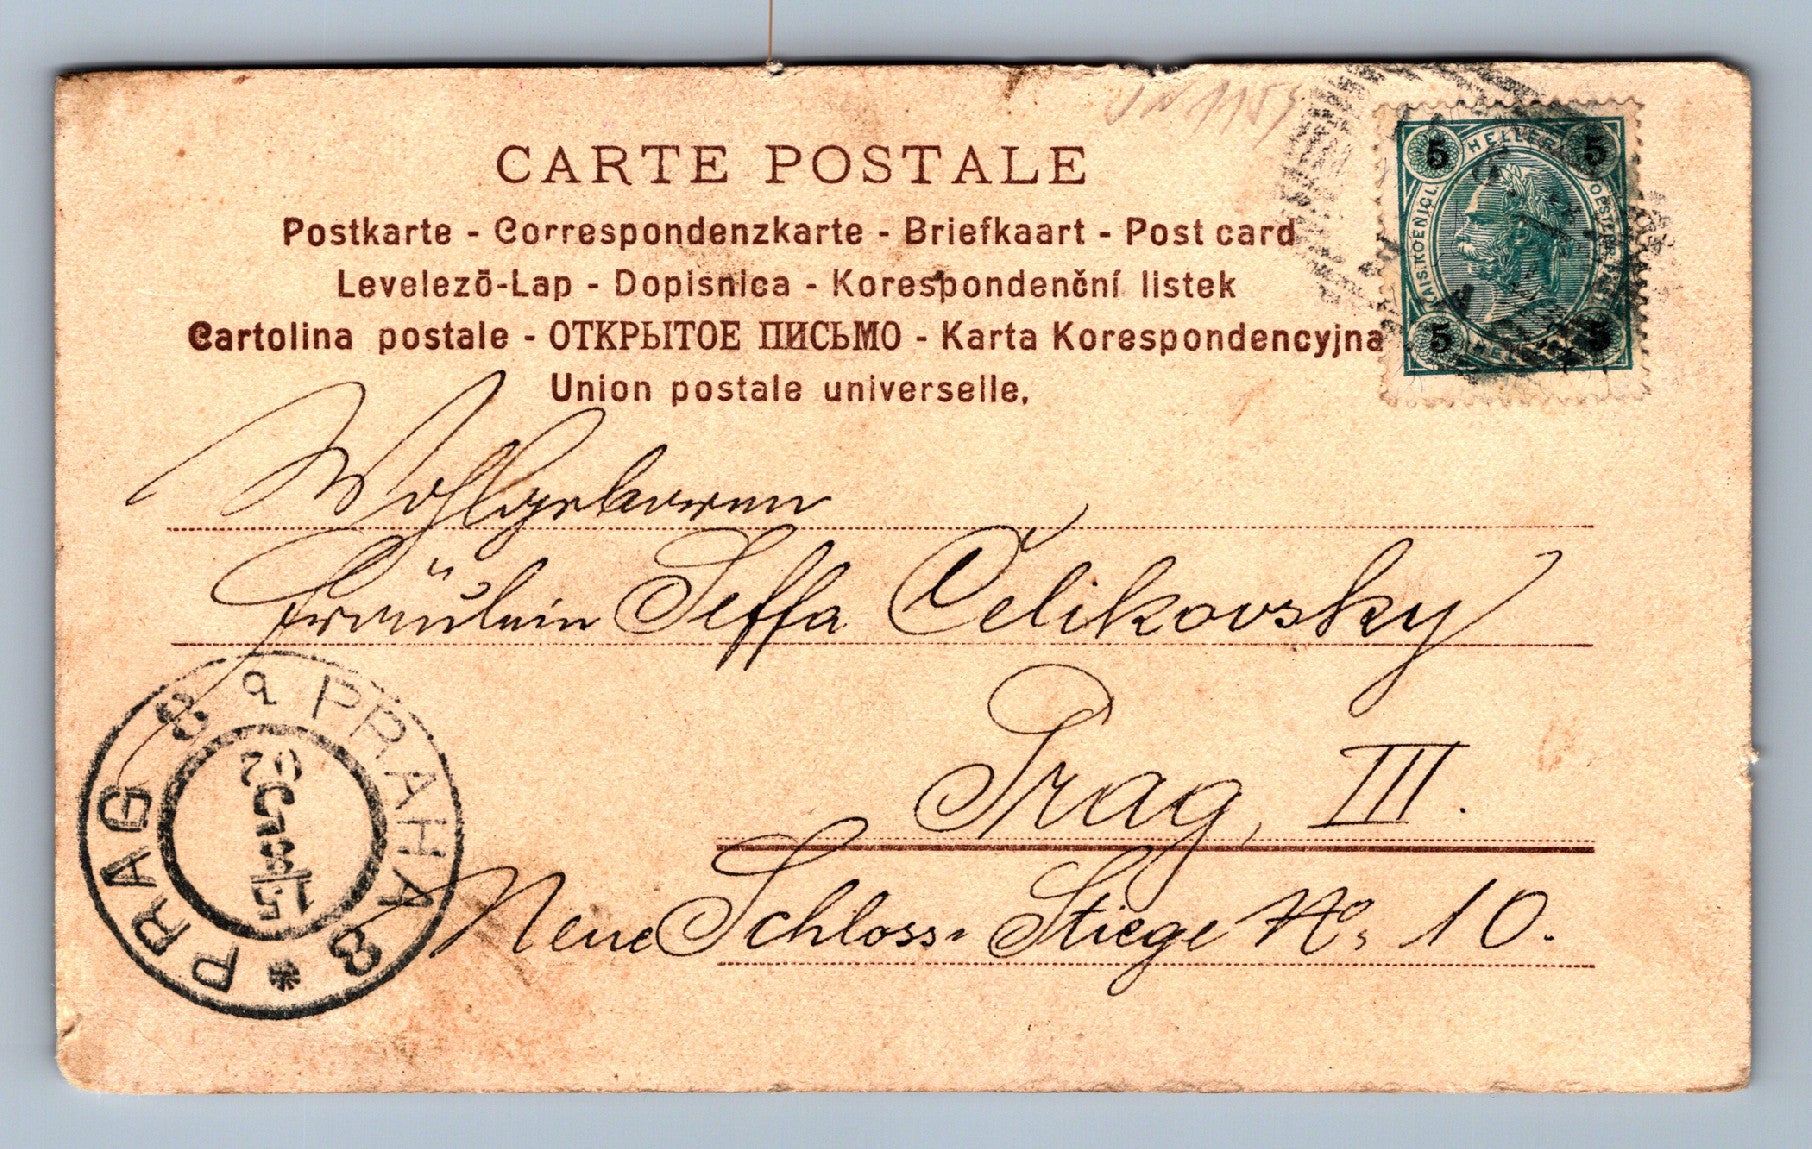 CARTE POSTALE
Postkarte - Correspondenzkarte - Briefkaart - Post card
Levelező-Lap - Dopisnica - Korespondenční listek
Cartolina postale - ОТКРЫТОЕ ПИСЬМО - Karta Korespondencyjna
Union postale universelle.
5 HELLER 5
KAIS. KOENIGL. OESTERR. POST
5 5
Wohlgeboren
Fräulein Seffa Čelikovsky
Prag, III.
Neue Schloss-Stiege No. 10.
PRAG 8 PRAHA 8